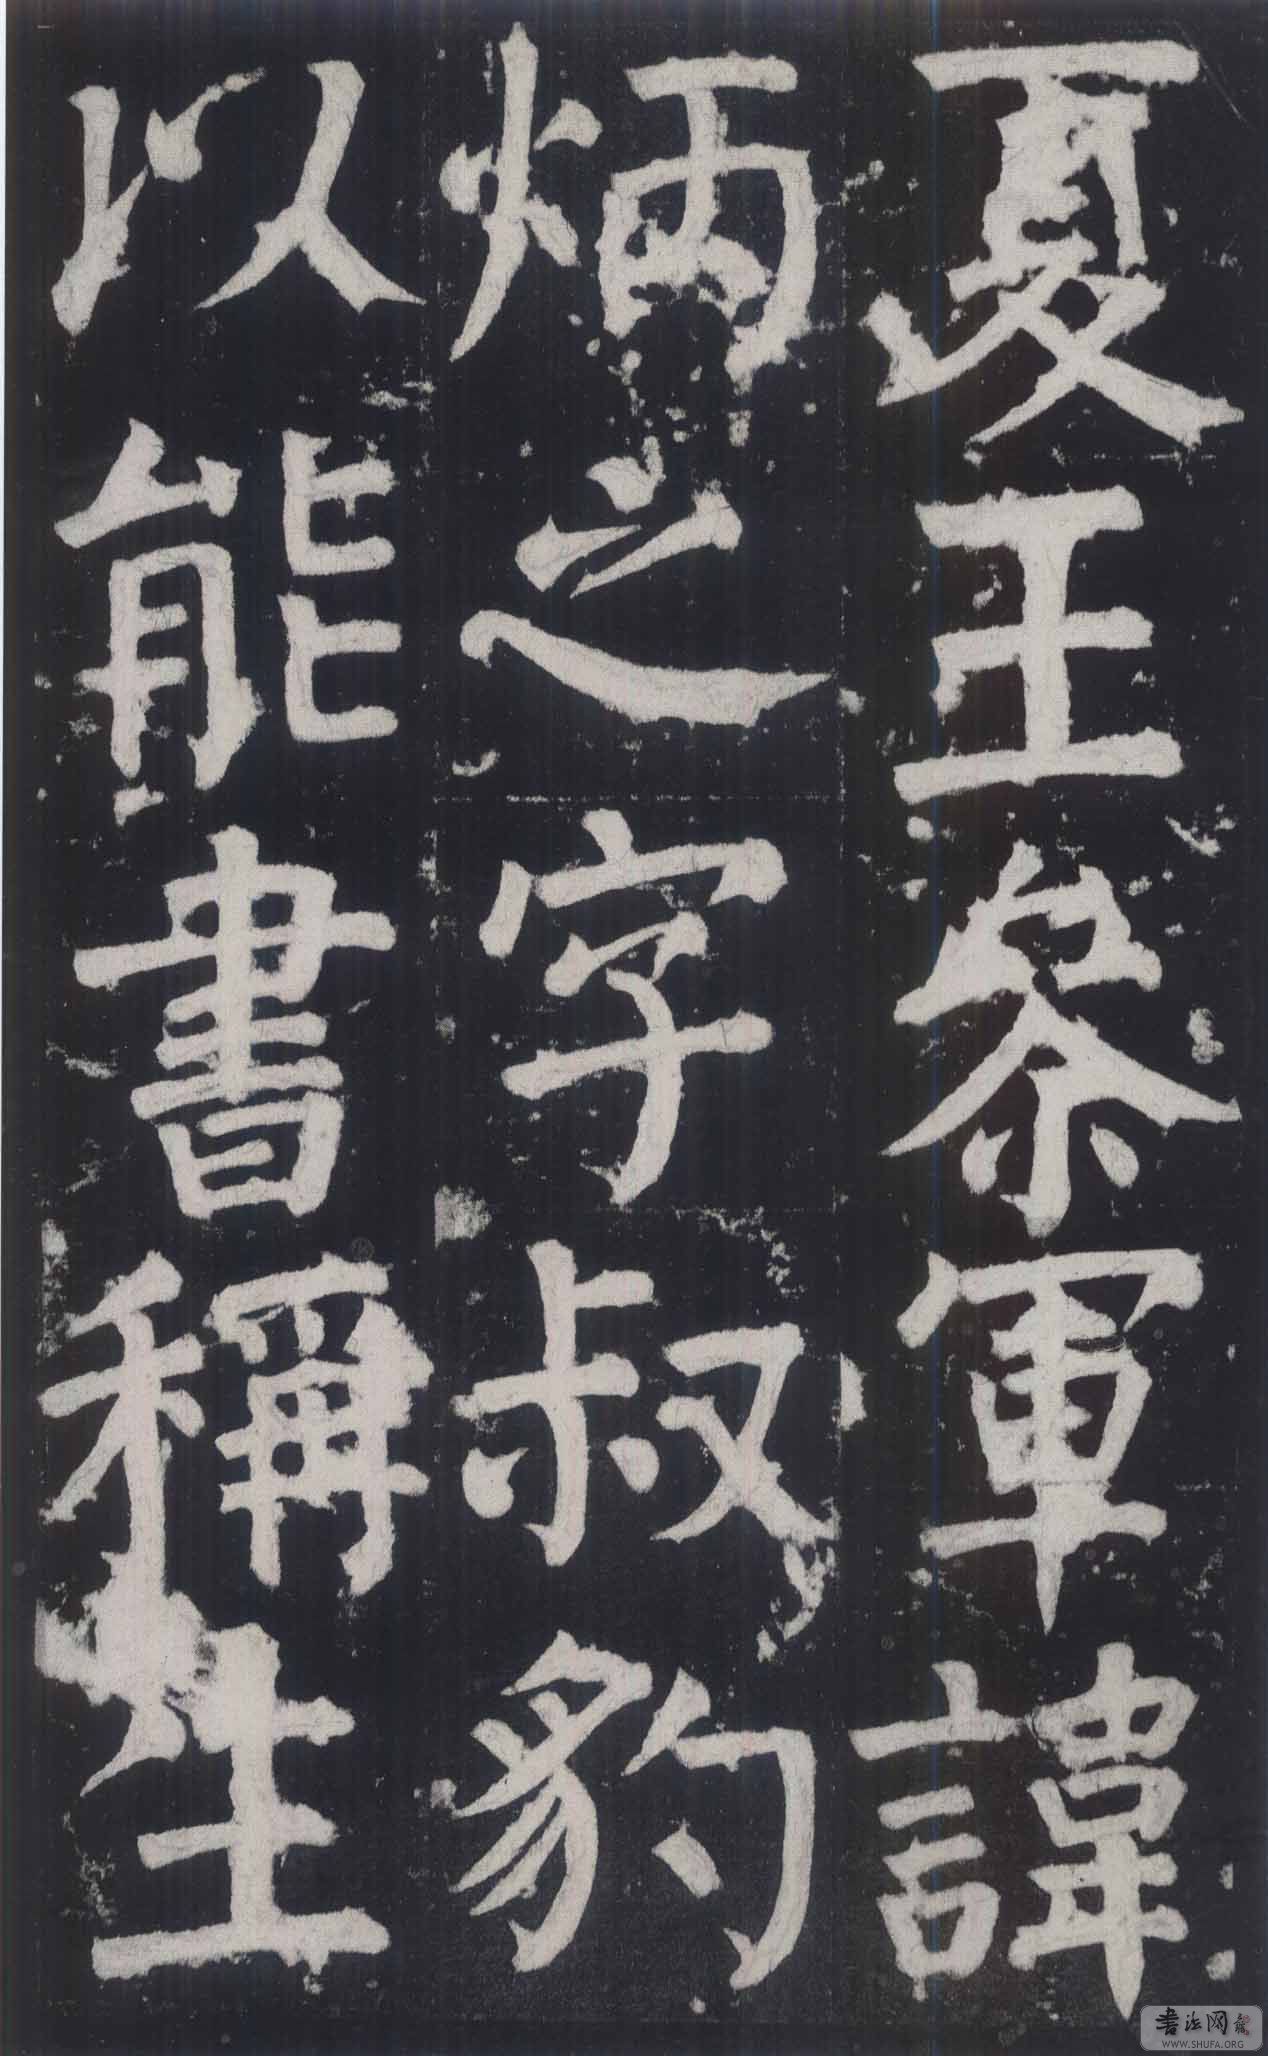 夏王參軍諱
炳之字叔豹
以能書稱生
書法网
WWW.SHUFA.ORG